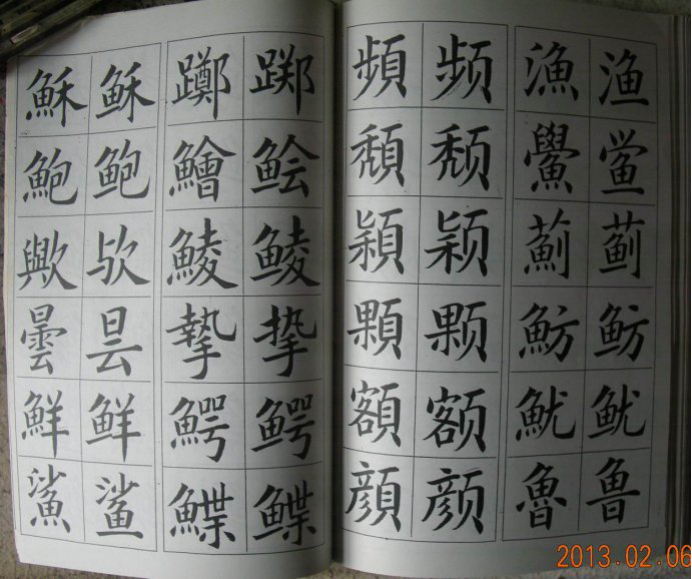 穌 稣 躑 踯
鮑 鲍 鱠 鲙
歟 欤 鯪 鲮
曇 昙 摯 挚
鮮 鲜 鰐 鳄
鯊 鲨 鰈 鲽
頻 频 漁 渔
頹 颓 鱟 鲎
穎 颖 薊 蓟
顆 颗 魴 鲂
額 额 魷 鱿
顏 颜 魯 鲁
2013.02.06